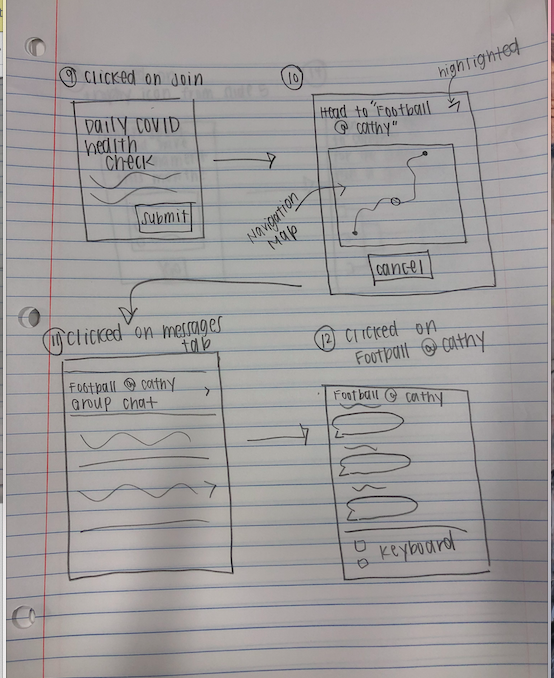 9 clicked on join
Daily COVID
health
check
submit
10
highlighted
Head to "Football
@ cathy"
Navigation
Map
cancel
11 clicked on messages
tab
Football @ cathy
group chat
12 clicked on
Football @ cathy
Football @ cathy
keyboard